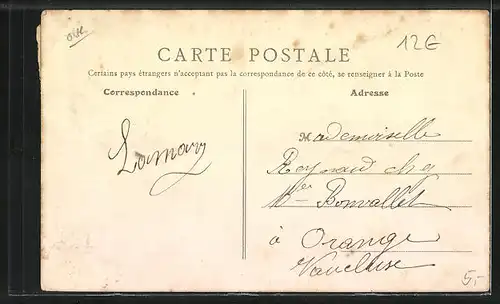 oise
12€
CARTE POSTALE
Certains pays étrangers n'acceptant pas la correspondance de ce côté, se renseigner à la Poste
Correspondance
Adresse
Mademoiselle
Reynaud chez
Bonvallet
à Orange
Vaucluse
5.-